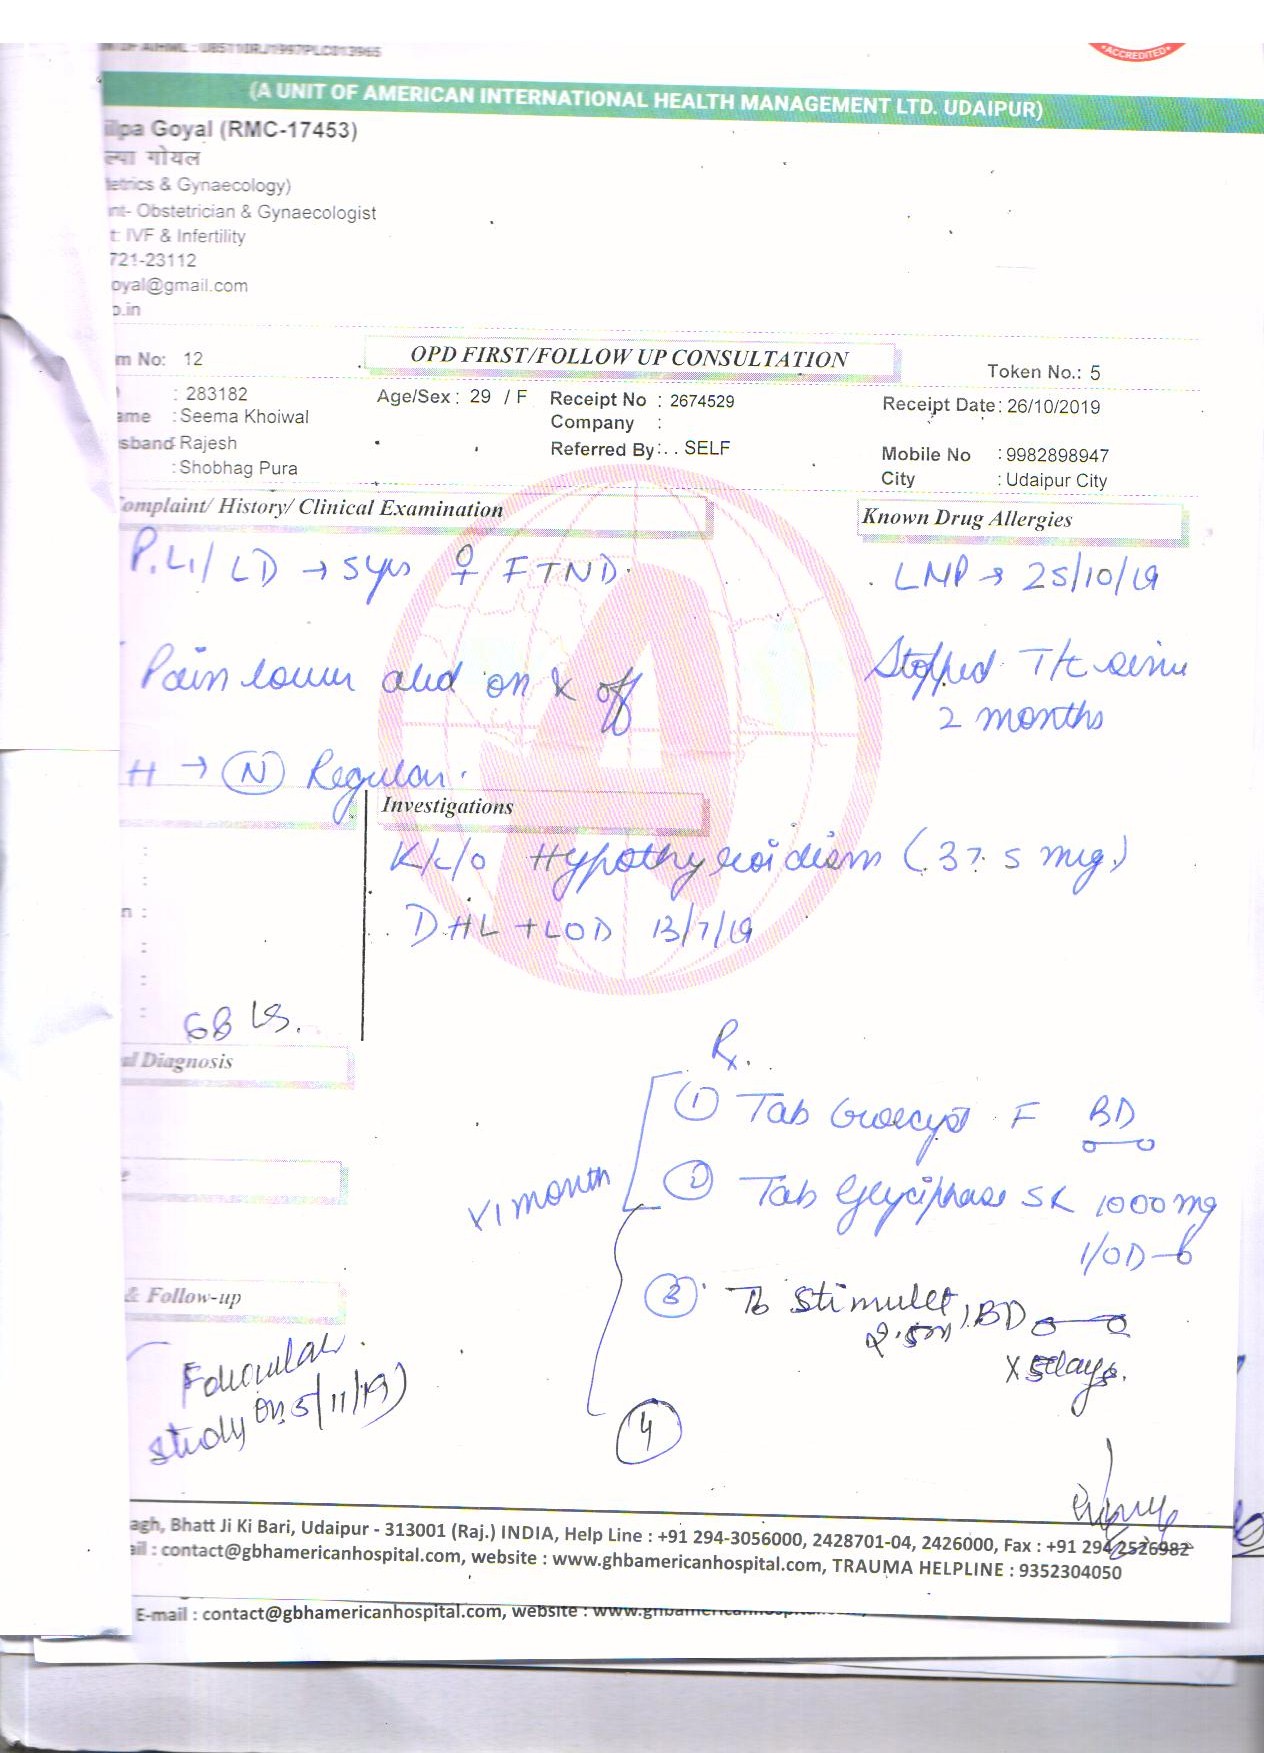 ACCREDITED
(A UNIT OF AMERICAN INTERNATIONAL HEALTH MANAGEMENT LTD. UDAIPUR)
ilpa Goyal (RMC-17453)
ल्पा गोयल
tetrics & Gynaecology)
nt- Obstetrician & Gynaecologist
t: IVF & Infertility
721-23112
oyal@gmail.com
o.in
m No: 12
OPD FIRST/FOLLOW UP CONSULTATION
Token No.: 5
: 283182
Age/Sex : 29 / F
Receipt No : 2674529
Receipt Date: 26/10/2019
ame : Seema Khoiwal
Company :
sband Rajesh
Referred By: . . SELF
Mobile No : 9982898947
: Shobhag Pura
City : Udaipur City
omplaint/ History/ Clinical Examination
Known Drug Allergies
P.L1/ LD → 5yrs ♀ FTND.
LMP → 25/10/19
Pain lower abd on & off
Stopped T/t since
2 months
H → (N) Regular.
Investigations
K/c/o Hypothyroidism (37.5 mcg.)
n :
DHL + LOD 13/7/19
68
al Diagnosis
Rx.
① Tab Ovacyst F BD
x 1 month
② Tab Glyciphase SR 1000 mg
1/OD
& Follow-up
③ Tb Stimulet 1 BD
x 5 days.
Follicular
study on 5/11/19)
④
agh, Bhatt Ji Ki Bari, Udaipur - 313001 (Raj.) INDIA, Help Line : +91 294-3056000, 2428701-04, 2426000, Fax : +91 294 2526982
ail : contact@gbhamericanhospital.com, website : www.ghbamericanhospital.com, TRAUMA HELPLINE : 9352304050
E-mail : contact@gbhamericanhospital.com, website :